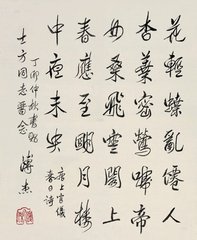 花輕蝶亂僊人
杏葉密鶯啼帝
女桑飛雲閣上
春應至明月樓
中夜未央
唐上官儀
春日詩
丁卯仲秋書贈
士方同志留念
溥杰